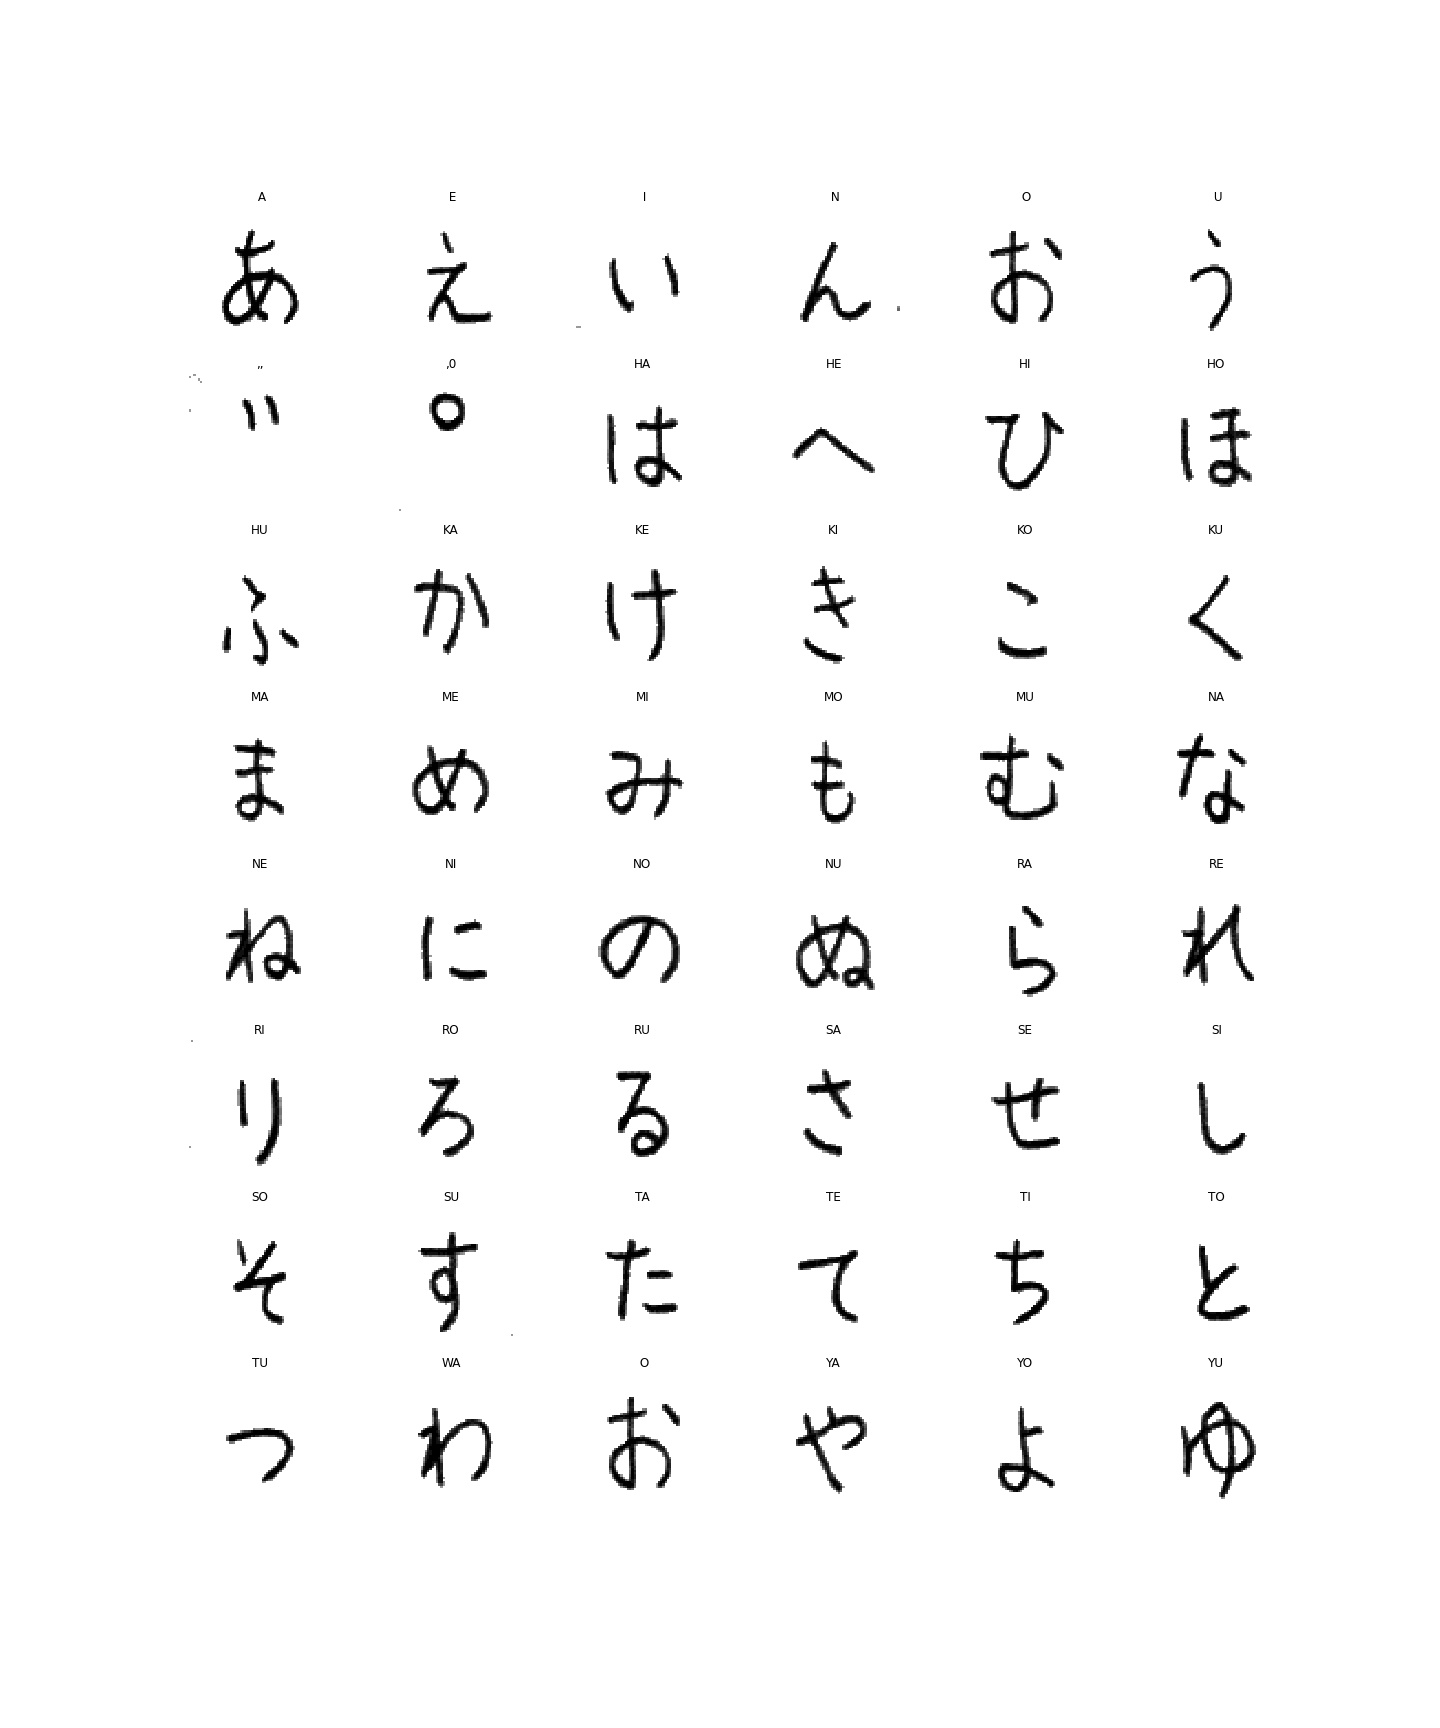 A E I N O U
あ え い ん お う
,, ,0 HA HE HI HO
" ° は へ ひ ほ
HU KA KE KI KO KU
ふ か け き こ く
MA ME MI MO MU NA
ま め み も む な
NE NI NO NU RA RE
ね に の ぬ ら れ
RI RO RU SA SE SI
り ろ る さ せ し
SO SU TA TE TI TO
そ す た て ち と
TU WA O YA YO YU
つ わ お や よ ゆ